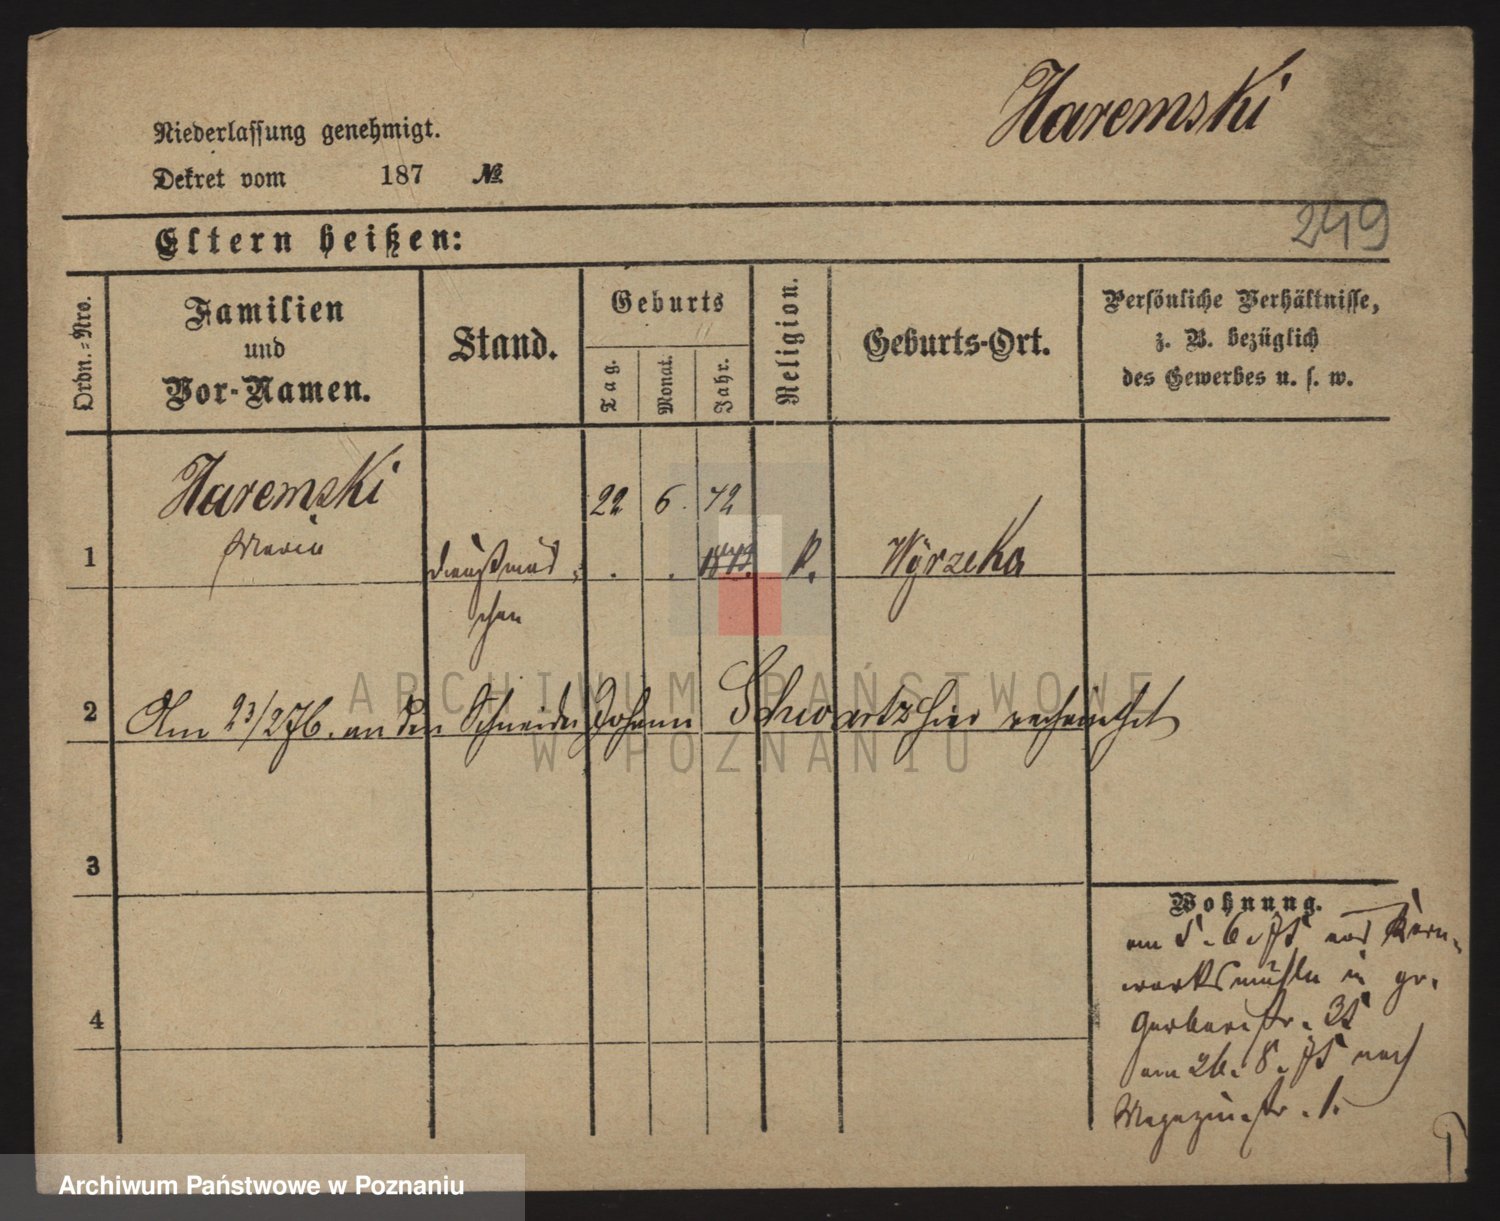 Haremski
Niederlassung genehmigt.
Dekret vom 187 №
249
Eltern heißen:
Ordn.-Nro.
Familien
und
Vor-Namen.
Stand.
Geburts
Tag.
Monat.
Jahr.
Religion.
Geburts-Ort.
Persönliche Verhältnisse,
z. B. bezüglich
des Gewerbes u. s. w.
Haremski
22 6. 72
1 Maria Dienstmäd- . . K. Wyrzeka
chen
2 Am 23/2 76. an den Schneider Johann Schwartz hier verheirathet
3
Wohnung.
am 5. 6. 75 aus Kern-
werksmühle in gr.
Gerberstr. 35
4
am 26. 8. 75 nach
Magazinstr. 1.
ARCHIWUM PAŃSTWOWE
W POZNANIU
Archiwum Państwowe w Poznaniu